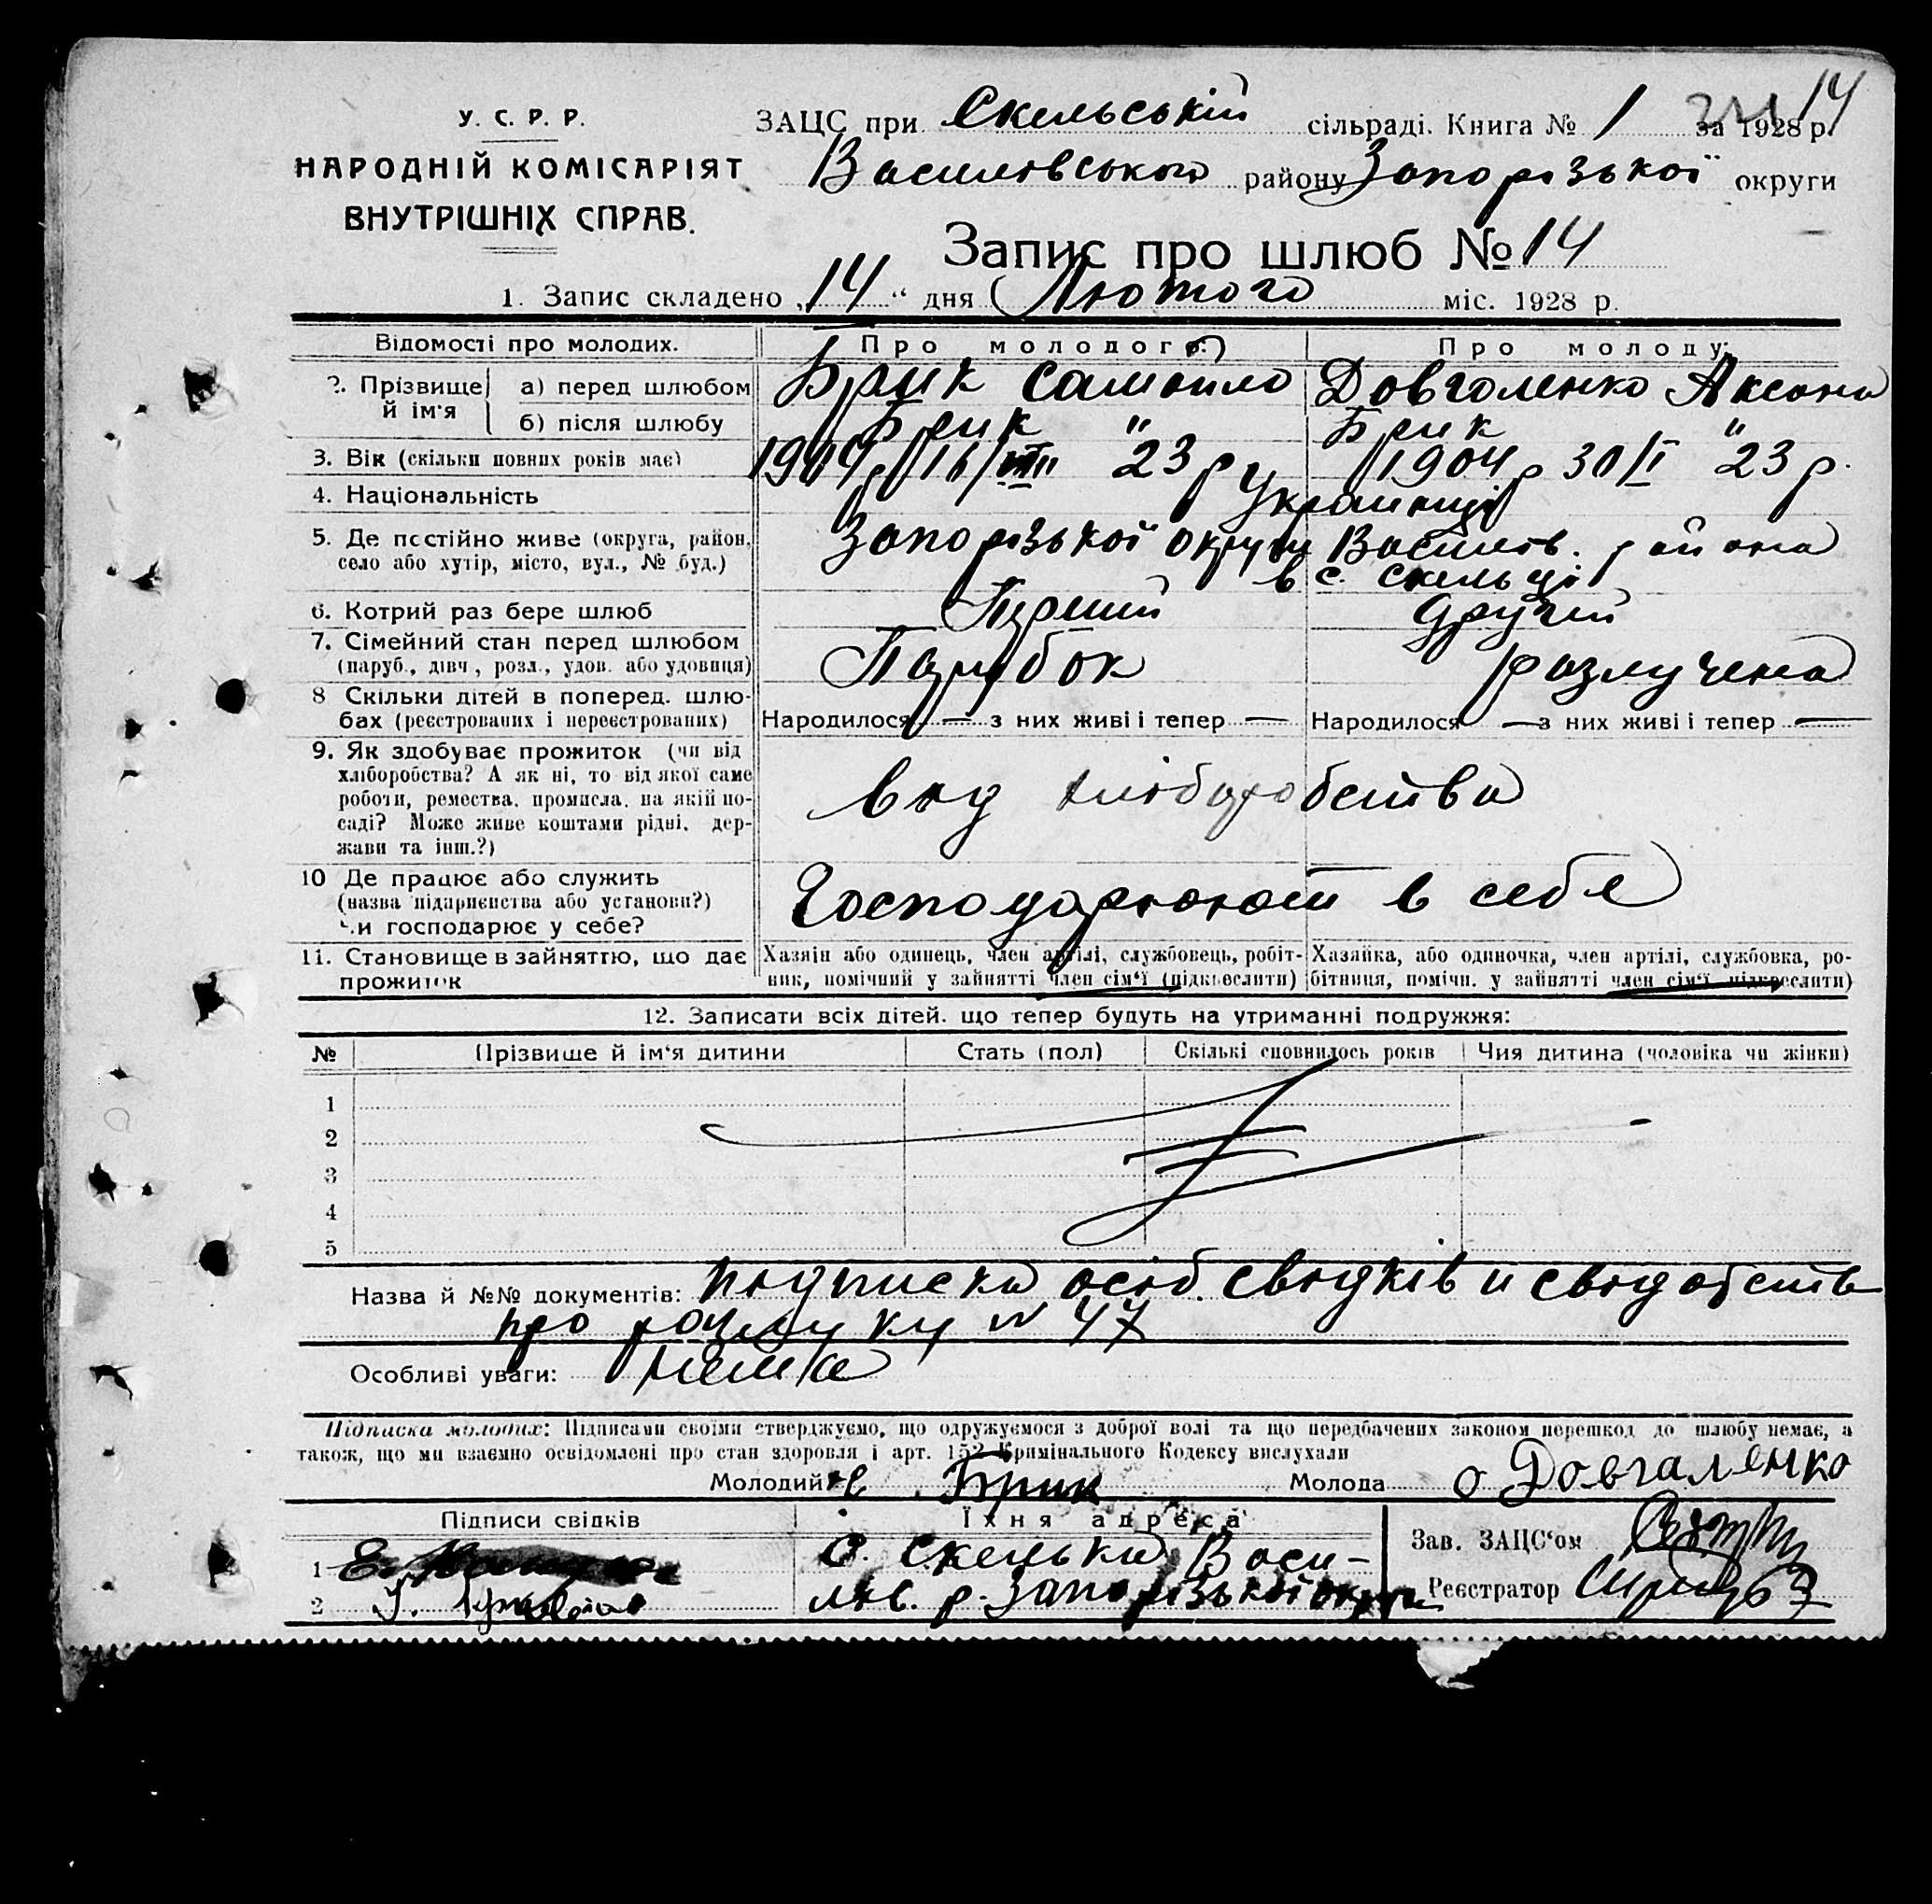 14
У. С. Р. Р.
НАРОДНІЙ КОМІСАРІЯТ
ВНУТРІШНІХ СПРАВ.
ЗАЦС при Скельській сільраді. Книга № 1 за 1928 р.
Василівського району Запорізької округи
Запис про шлюб № 14
1. Запис складено „14“ дня Лютого міс. 1928 р.
Відомості про молодих. Про молодого: Про молоду:
2. Прізвище й ім'я а) перед шлюбом Брик Самойло Довголенко Аксана
б) після шлюбу Брик " Брик "
3. Вік (скільки повних років має) 16/VIII 23 р 1904 р 30/I 23 р.
4. Національність Украинці
5. Де постійно живе (округа, район, село або хутір, місто, вул., № буд.) Запорізької округи Василів. района
в с. Скельці
6. Котрий раз бере шлюб Перший Другий
7. Сімейний стан перед шлюбом (паруб., дівч., розл., удов. або удовиця) Парубок разлучена
8 Скільки дітей в поперед. шлюбах (реєстрованих і нереєстрованих) Народилося — з них живі і тепер — Народилося — з них живі і тепер —
9. Як здобуває прожиток (чи від хліборобства? А як ні, то від якої саме роботи, ремества, промисла, на якій посаді? Може живе коштами рідні, держави та інш.?) від хліборобства
10 Де працює або служить (назва підприєнства або установи?) чи господарює у себе? Господарюют в себе
11. Становище в зайняттю, що дає прожиток
Хазяін або одинець, член артілі, службовець, робітник, помічний у зайнятті член сім'ї (підкреслити)
Хазяйка, або одиночка, член артілі, службовка, робітниця, помічн. у зайнятті член сім'ї підкреслити)
12. Записати всіх дітей, що тепер будуть на утриманні подружжя:
№ Прізвище й ім'я дитини Стать (пол) Скількі сповнилось років Чия дитина (чоловіка чи жінки)
1
2
3
4
5
Назва й №№ документів: підписка осіб. свідків и свідоцтв
про разлуку № 47
Особливі уваги: нема
Підписка молодих: Підписами своїми стверджуємо, що одружуємося з доброї волі та що передбачених законом перешкод до шлюбу немає, а
також, що ми взаємно освідомлені про стан здоровля і арт. 152 Кримінального Кодексу вислухали
Молодий Брик Молода Довгаленко
Підписи свідків Їхня адреса
1 с. Скелька Васи-
2 лів. р. Запорізької округи
Зав. ЗАЦС'ом
Реєстратор